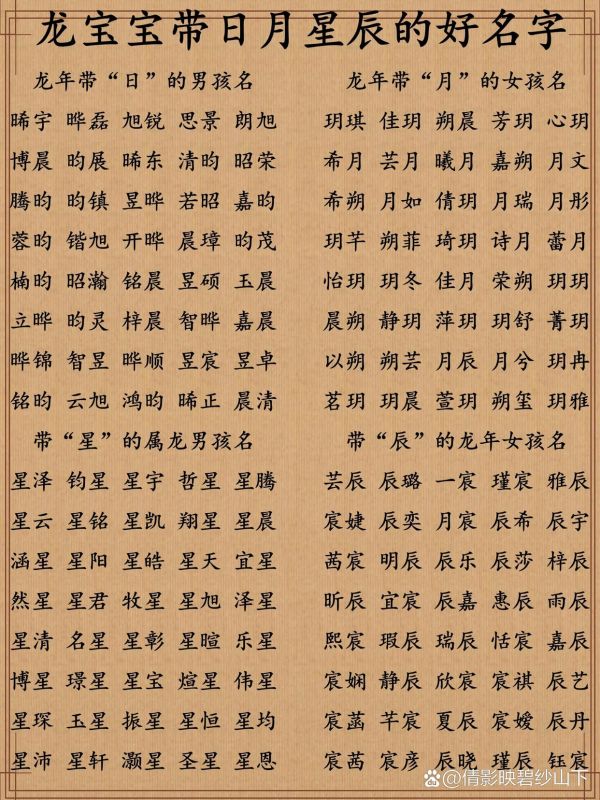 龙宝宝带日月星辰的好名字
龙年带“日”的男孩名
晞宇 晔磊 旭锐 思景 朗旭
博晨 昀展 晞东 清昀 昭荣
腾昀 昀镇 昱晔 若昭 嘉昀
蓉昀 锴旭 开晔 晨璋 昀茂
楠昀 昭瀚 铭晨 昱硕 玉晨
立晔 昀灵 梓晨 智晔 嘉晨
晔锦 智昱 晔顺 昱宸 昱卓
铭昀 云旭 鸿昀 晞正 晨清
龙年带“月”的女孩名
玥琪 佳玥 朔晨 芳玥 心玥
希月 芸月 曦月 嘉朔 月文
希朔 月如 倩玥 月瑞 月彤
玥芊 朔菲 琦玥 诗月 蕾月
怡玥 玥冬 佳月 荣朔 玥玥
晨朔 静玥 萍玥 玥舒 菁玥
以朔 朔芸 月辰 月兮 玥冉
茗玥 玥晨 萱玥 朔玺 玥雅
带“星”的属龙男孩名
星泽 钧星 星宇 哲星 星腾
星云 星铭 星凯 翔星 星晨
涵星 星阳 星皓 星天 宜星
然星 星君 牧星 星旭 泽星
星清 名星 星彰 星暄 乐星
博星 璟星 星宝 煊星 伟星
星琛 玉星 振星 星恒 星均
星沛 星轩 灏星 圣星 星恩
带“辰”的龙年女孩名
芸辰 辰璐 一宸 瑾宸 雅辰
宸婕 辰奕 月宸 辰希 辰宇
茜宸 明辰 辰乐 辰莎 梓辰
昕辰 宜宸 辰嘉 惠辰 雨辰
熙宸 瑕辰 瑞辰 恬宸 嘉辰
宸娴 静辰 欣宸 宸祺 辰艺
宸菡 芊宸 夏辰 宸嫒 辰丹
宸茜 宸彦 辰晓 瑾辰 钰宸
@倩影映碧纱山下